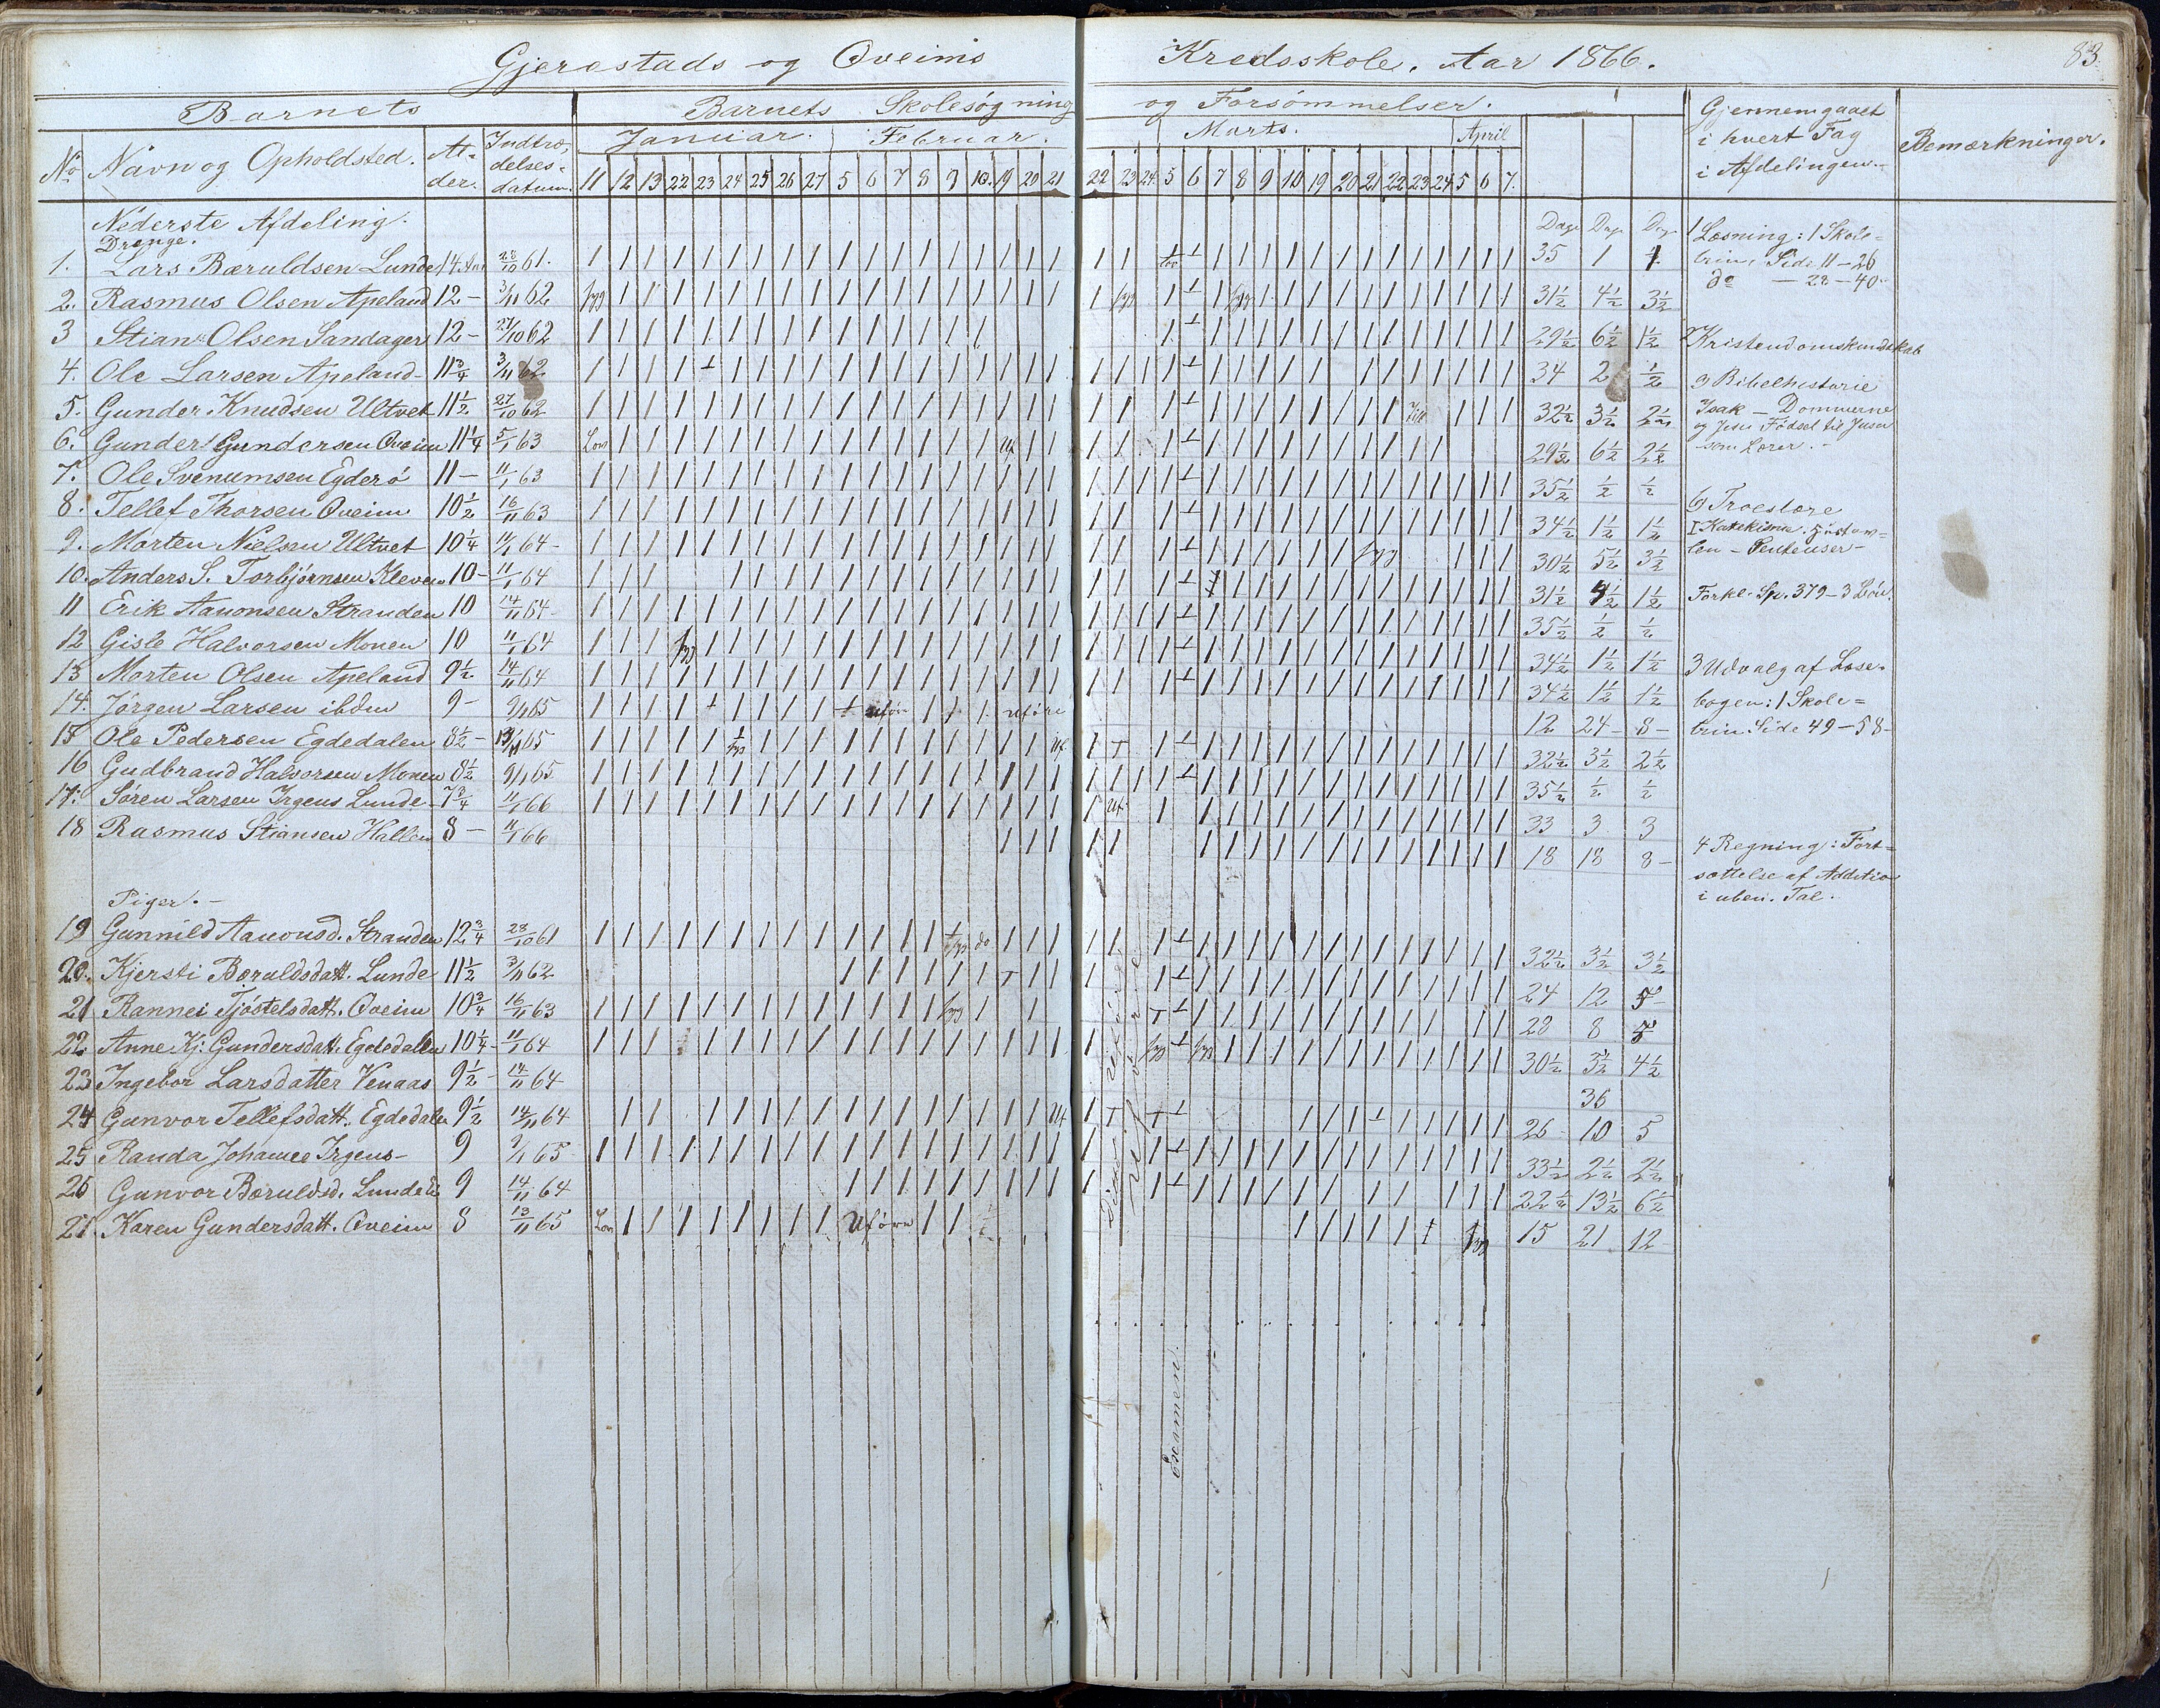 Gjerestads og Qveims Kredsskole. Aar 1866. 83.
Barnets Barnets Skolesøgning og Forsømmelser. Gjennemgaaet i hvert Fag i Afdelingen. Bemærkninger.
No Navn og Opholdsted. Alder. Indtrædelsesdatum. Januar. Februar. Marts. April
11 12 13 22 23 24 25 26 27 5 6 7 8 9 10. 19 20 21 22 23 24 5 6 7 8 9 10 19 20 21 22 23 24 5 6 7.
Nederste Afdeling.
Drenge. Dage Dage Dage
1. Lars Bæruldsen Lunde 14 Aar 28/10 61. 35 1 1
2. Rasmus Olsen Apeland 12 - 3/11 62 syg syg syg 31½ 4½ 3½
3 Stian Olsen Sandager 12 - 27/10 62 29½ 6½ 1½
4. Ole Larsen Apeland 11¾ 3/11 62 34 2 ½
5. Gunder Knudsen Ultvet 11½ 27/10 62 32½ 3½ 2½
6. Gunder Gundersen Qveim 11¼ 5/1 63 Lov Uf 29½ 6½ 2½
7. Ole Svenumsen Egderø 11 - 11/1 63 35½ ½ ½
8. Tellef Thorsen Qveim 10½ 16/11 63 34½ 1½ 1½
9. Morten Nielsen Ultvet 10¼ 11/1 64 - syg 30½ 5½ 3½
10. Anders S. Torbjørnsen Kleven 10 - 11/1 64 31½ 4½ 1½
11 Erik Aanonsen Stranden 10 14/11 64 35½ ½ ½
12 Gisle Halvorsen Monen 10 11/1 64 syg 34½ 1½ 1½
13 Morten Olsen Apeland 9½ 14/11 64 34½ 1½ 1½
14. Jørgen Larsen ibdm 9 - 9/1 65 uføre uføre 12 24 - 8 -
15 Ole Pedersen Egdedalen 8½ - 13/11 65 syg Uf. T 32½ 3½ 2½
16 Gudbrand Halvorsen Monen 8½ 9/1 65 35½ ½ ½
17. Søren Larsen Irgens Lunde 7¾ 11/1 66 Uf. 33 3 3
18 Rasmus Stiansen Hallem 8 - 11/1 66 18 18 8 -
Piger. -
19 Gunnild Aanonsd. Stranden 12¾ 28/10 61 syg do 32½ 3½ 3½
20. Kjersti Bæruldsdatt. Lunde 11½ 3/11 62 T 24 12 5 -
21 Rannei Tjøstelsdatt. Qveim 10¾ 16/11 63 syg T 28 8 5
22 Anne Kj. Gundersdatt. Egdedalen 10¼ - 11/1 64 syg syg 30½ 3½ 4½
23 Ingebor Larsdatter Venaas 9½ - 14/11 64 36
24 Gunvor Tellefsdatt. Egdedalen 9½ 14/11 64 Uf T T 26 10 5
25 Randa Johanne Irgens - 9 9/1 65 33½ 2½ 2½
26 Gunvor Bæruldsd. Lunde 9 14/11 64 22½ 13½ 6½
27. Karen Gundersdatt. Qveim 8 13/11 65 Lov Uføre syg 15 21 12
Examen.
1 Læsning: 1 Skole=
trin Side 11 - 26
do - 28 - 40.
2 Kristendomskundskab
a) Bibelhistorie
Isak - Dommerne
og Jesu Fødsel til Jesus
som Lærer. -
b) Troeslære
I Katekisme
Forkl. Sp. 379 - 3 Bøn.
3 Udvalg af Læse=
bogen: 1 Skole=
trin Side 49 - 58 -
4 Regning: Fort=
sættelse af Addition
i uben. Tal.